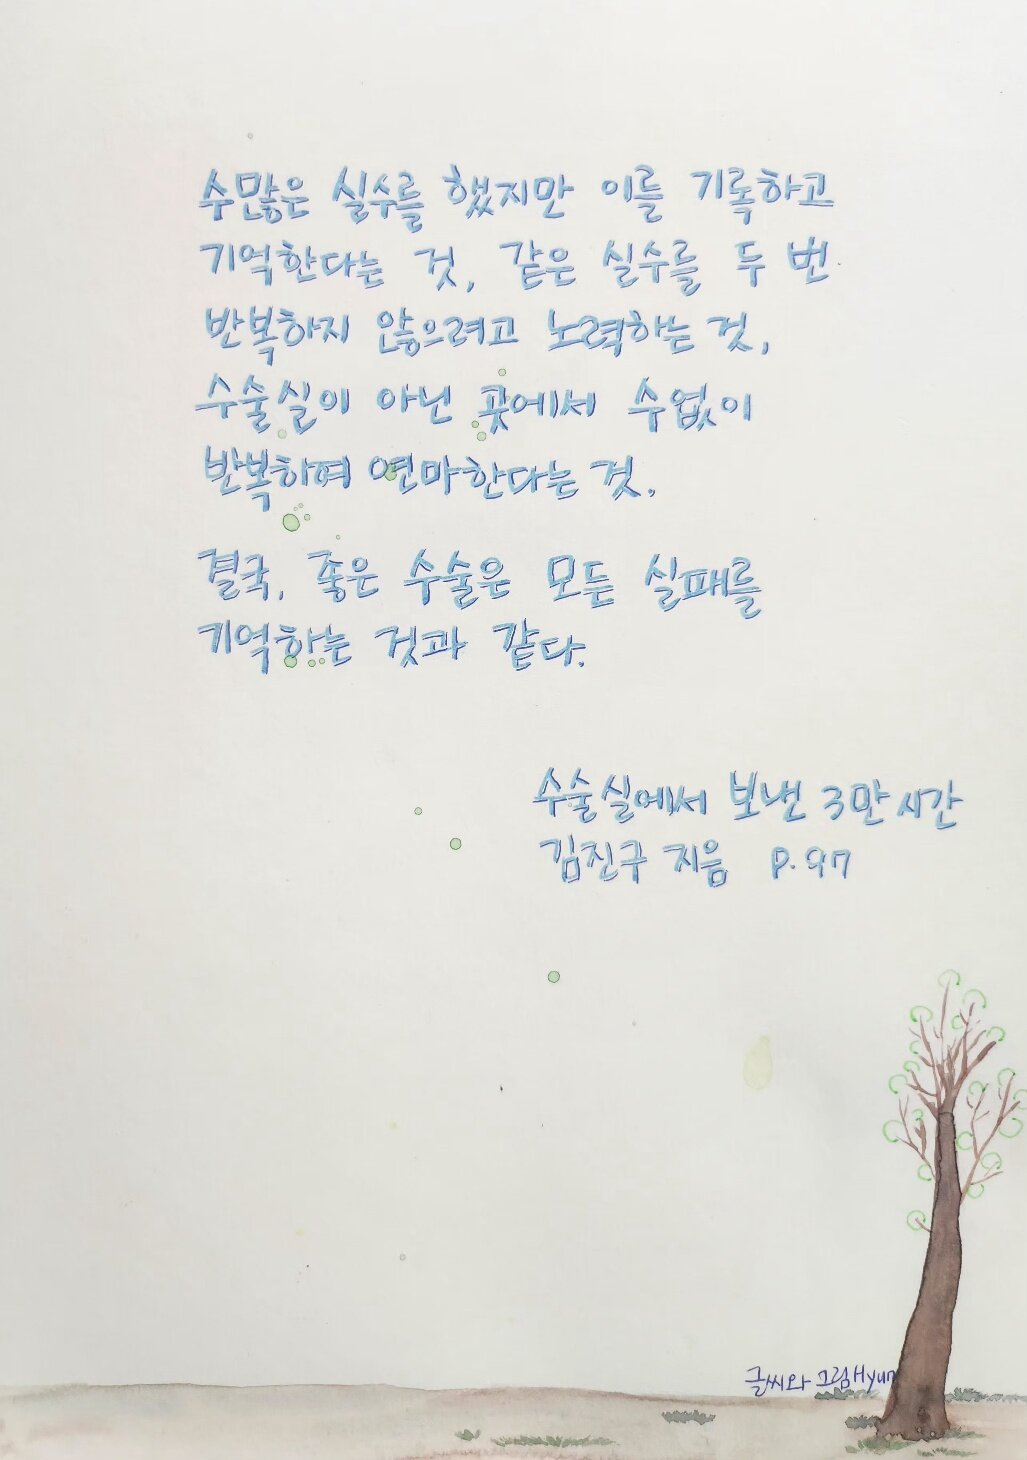 수많은 실수를 했지만 이를 기록하고
기억한다는 것, 같은 실수를 두 번
반복하지 않으려고 노력하는 것,
수술실이 아닌 곳에서 수없이
반복하여 연마한다는 것.
결국, 좋은 수술은 모든 실패를
기억하는 것과 같다.
수술실에서 보낸 3만 시간
김진구 지음 P.97
글씨와 그림Hyun